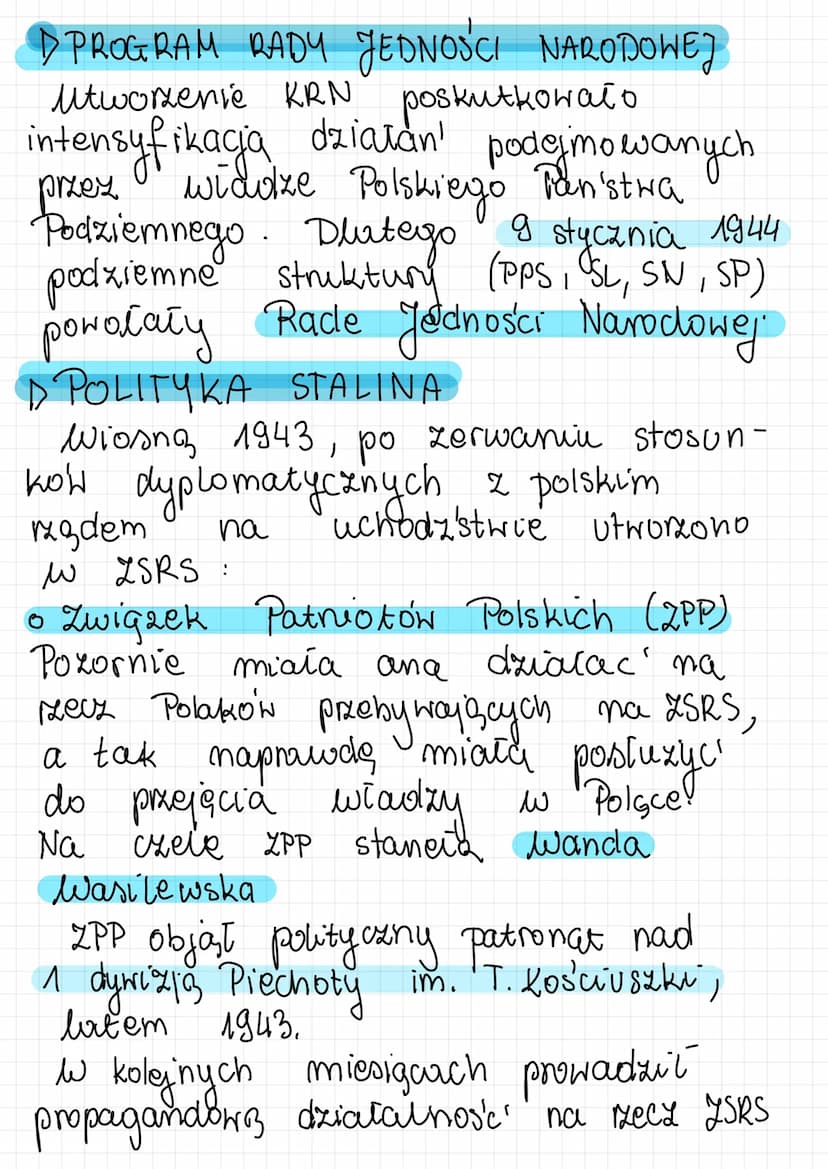 ▷ PROGRAM RADY JEDNOŚCI NARODOWEJ
Utworzenie KRN poskutkowało
intensyfikacją działań podejmowanych
przez władze Polskiego Państwa
Podziemnego. Dlatego 9 stycznia 1944
podziemne struktury (PPS, SL, SN, SP)
powołały Radę Jedności Narodowej.
▷ POLITYKA STALINA
Wiosną 1943, po zerwaniu stosun-
ków dyplomatycznych z polskim
rządem na uchodźstwie utworzono
w ZSRS:
o Związek Patriotów Polskich (ZPP)
Pozornie miała ona działać na
rzecz Polaków przebywających na ZSRS,
a tak naprawdę miała posłużyć
do przejęcia władzy w Polsce.
Na czele ZPP stanęła Wanda
Wasilewska
ZPP objął polityczny patronat nad
1 dywizją Piechoty im. T. Kościuszki,
latem 1943.
W kolejnych miesiącach prowadził
propagandową działalność na rzecz ZSRS